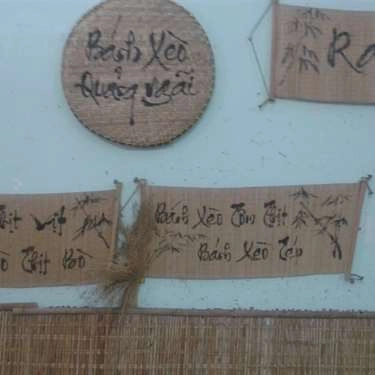 Bánh Xèo
Quảng Ngãi
Ra
Thịt Vịt
Thịt Bò
Bánh Xèo Tôm Thịt
Bánh Xèo Tép